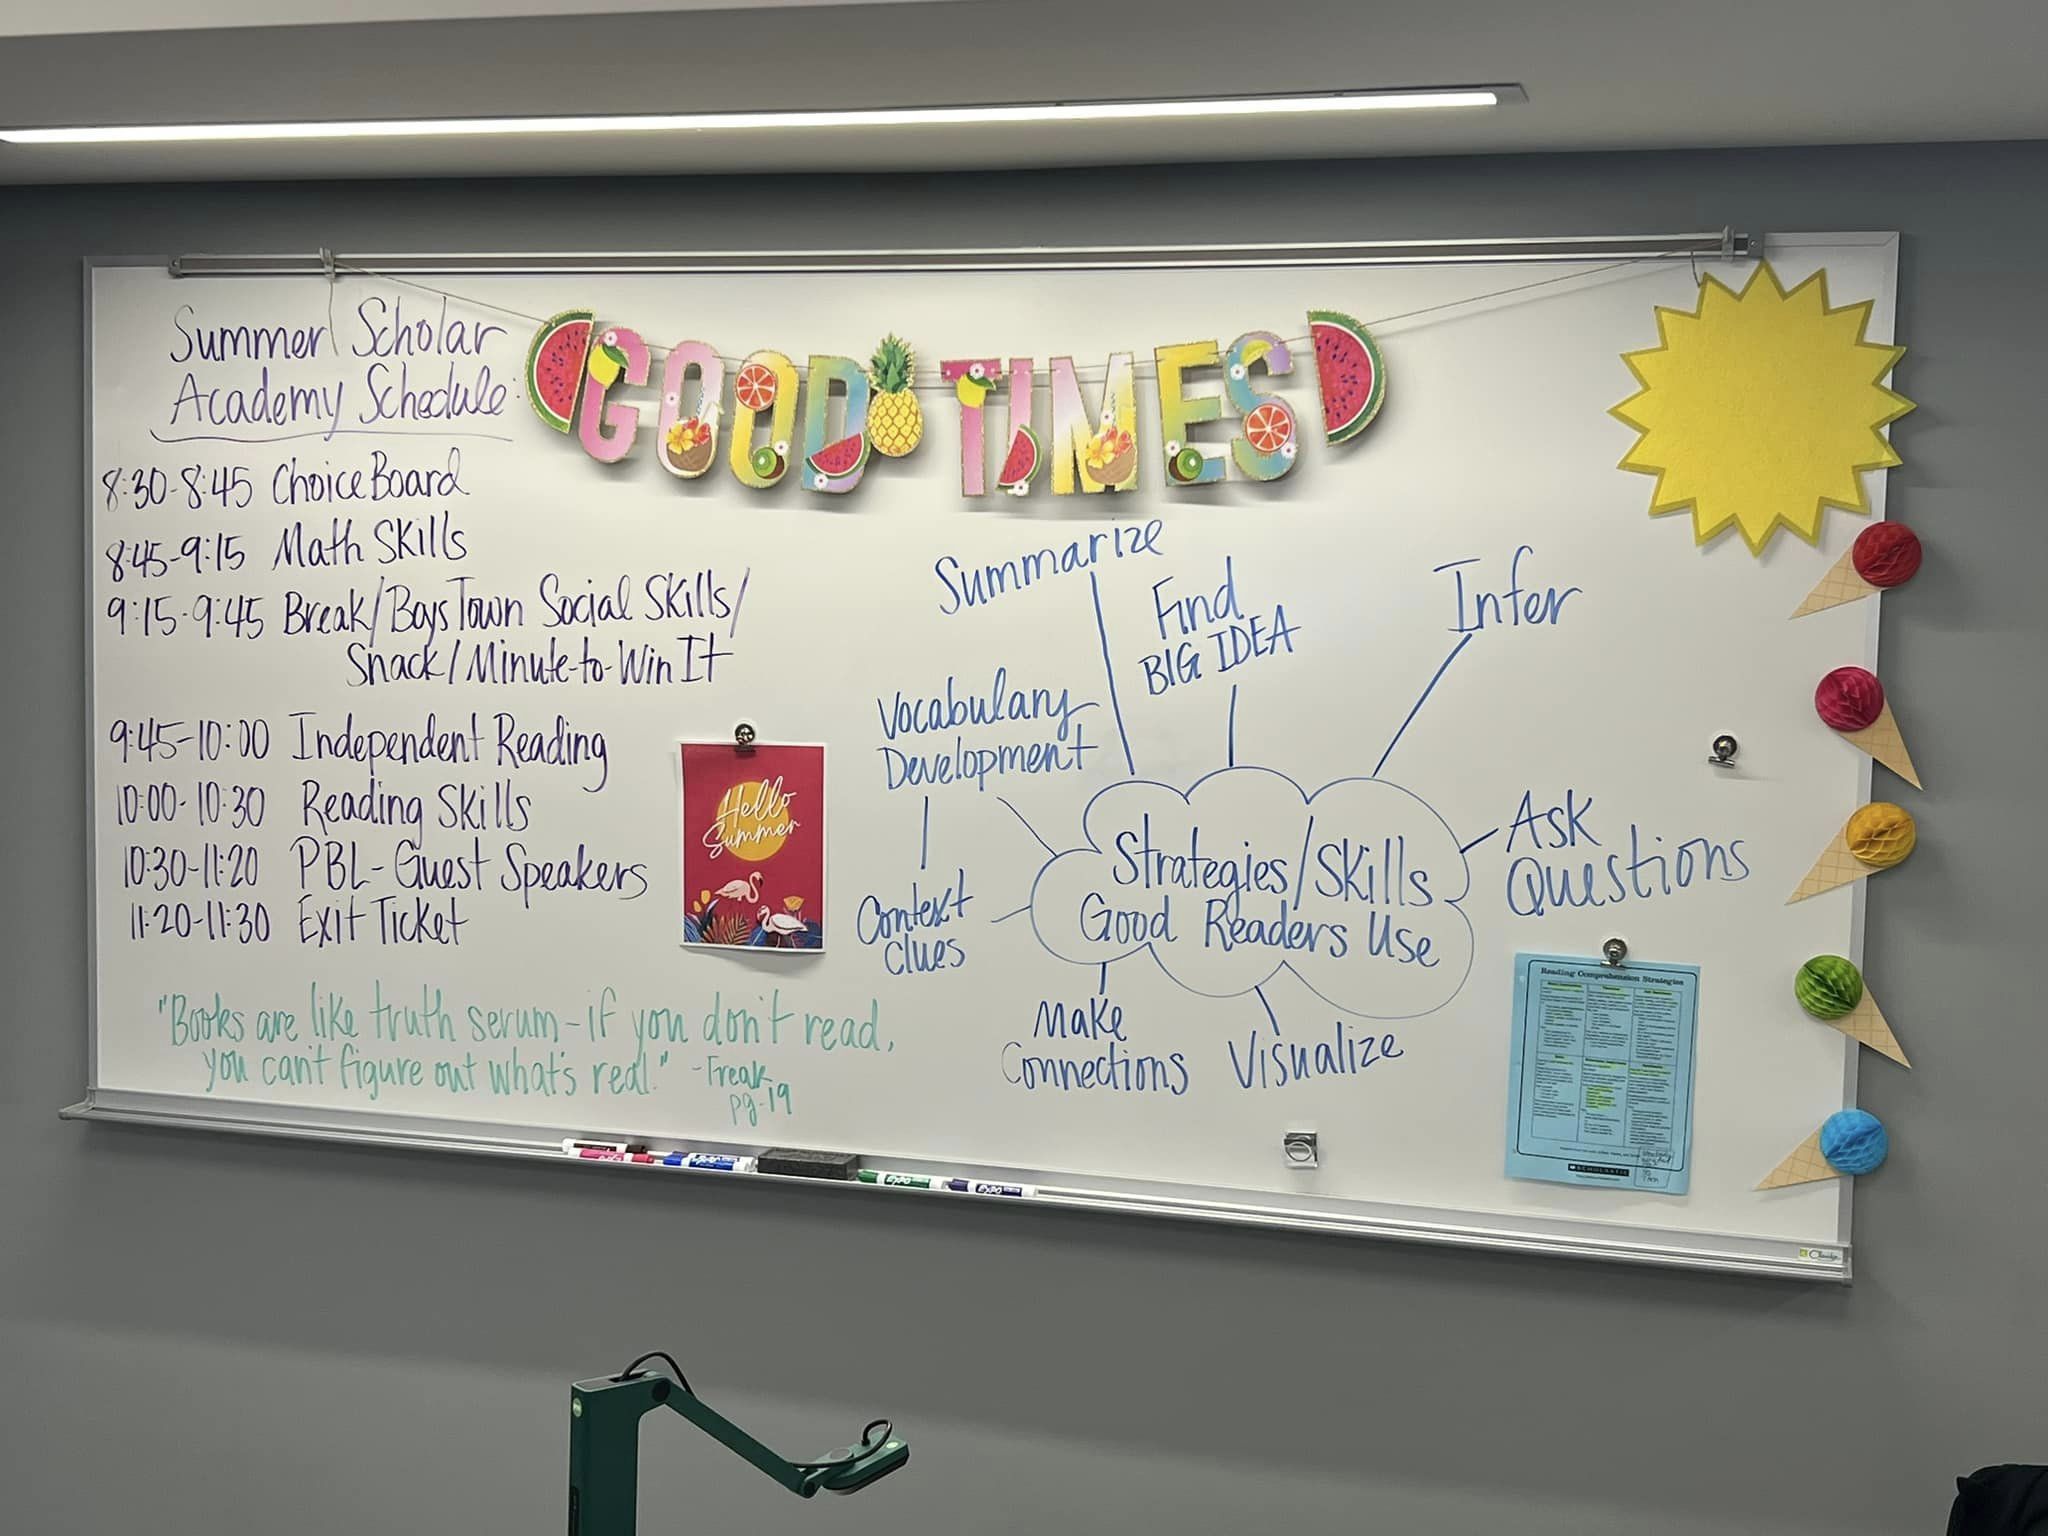 Summer Scholar
Academy Schedule:
8:30-8:45 Choice Board
8:45-9:15 Math Skills
9:15-9:45 Break/Boys Town Social Skills/
Snack/Minute-to-Win It
9:45-10:00 Independent Reading
10:00-10:30 Reading Skills
10:30-11:20 PBL-Guest Speakers
11:20-11:30 Exit Ticket
"Books are like truth serum-if you don't read,
you can't figure out what's real." -Freak
pg. 19
GOOD TIMES
Hello
Summer
Summarize
Find
BIG IDEA
Infer
Vocabulary
Development
Context
Clues
Strategies/Skills
Good Readers Use
Ask
Questions
Make
Connections
Visualize
Reading Comprehension Strategies
SCHOLASTIC
EXPO
EXPO
EXPO